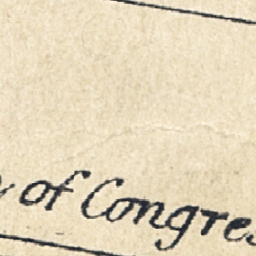 of Congres